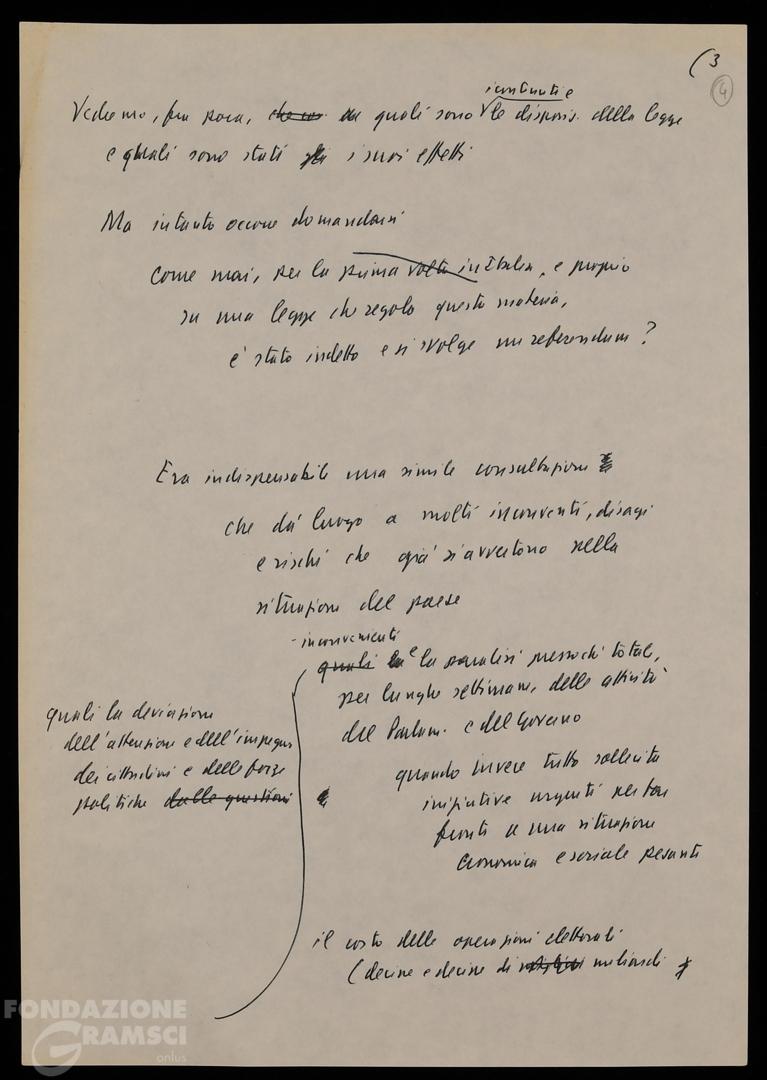 (3
4
Vedremo, fra poco, che cos quali sono le disposiz. della legge
e quali sono stati gli i suoi effetti
Ma intanto occorre domandarsi
Come mai, per la prima volta in Italia, e proprio
su una legge che regola questa materia,
è stato indetto e si svolge un referendum?
Era indispensabile una simile consultazione
che dà luogo a molti inconvenienti, disagi
e rischi che già si avvertono nella
situazione del paese
- inconvenienti
quali la e la paralisi pressoché totale,
per lunghe settimane, delle attività
del Parlam. e del Governo
quando invece tutto sollecita
iniziative urgenti per far
fronte a una situazione
economica e sociale pesante
quali la deviazione
dell'attenzione e dell'impegno
dei cittadini e delle forze
politiche dalle questioni
il costo delle operazioni elettorali
(decine e decine di miliardi
FONDAZIONE
GRAMSCI
onlus